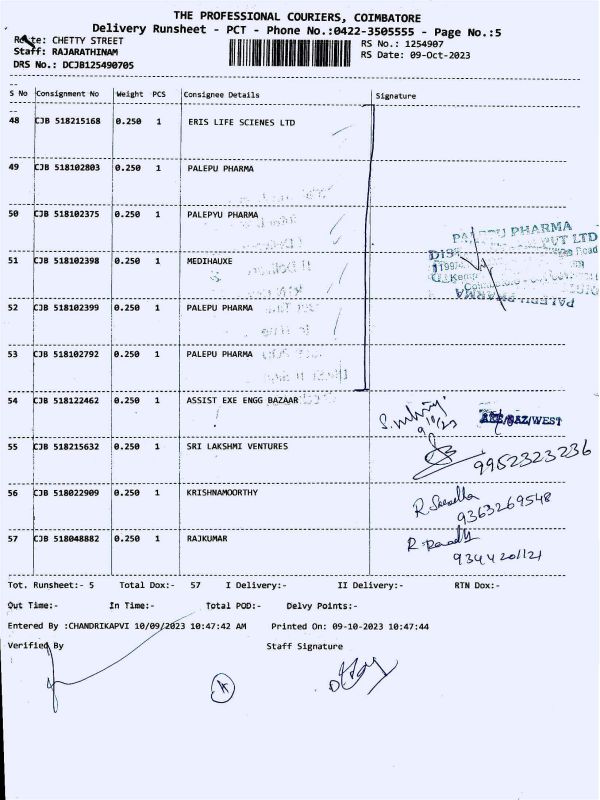 THE PROFESSIONAL COURIERS, COIMBATORE
Delivery Runsheet - PCT - Phone No.:0422-3505555 - Page No.:5
Route: CHETTY STREET
RS No.: 1254907
Staff: RAJARATHINAM
RS Date: 09-Oct-2023
DRS No.: DCJB125490705
S No Consignment No Weight PCS Consignee Details Signature
48 CJB 518215168 0.250 1 ERIS LIFE SCIENES LTD
49 CJB 518102803 0.250 1 PALEPU PHARMA
50 CJB 518102375 0.250 1 PALEPYU PHARMA
PALEPU PHARMA
51 CJB 518102398 0.250 1 MEDIHAUXE
52 CJB 518102399 0.250 1 PALEPU PHARMA
53 CJB 518102792 0.250 1 PALEPU PHARMA
54 CJB 518122462 0.250 1 ASSIST EXE ENGG BAZAAR
9/10/23
/BAZ/WEST
55 CJB 518215632 0.250 1 SRI LAKSHMI VENTURES
9952323236
56 CJB 518022909 0.250 1 KRISHNAMOORTHY
9363269548
57 CJB 518048882 0.250 1 RAJKUMAR
9344201121
Tot. Runsheet:- 5 Total Dox:- 57 I Delivery:- II Delivery:- RTN Dox:-
Out Time:- In Time:- Total POD:- Delvy Points:-
Entered By :CHANDRIKAPVI 10/09/2023 10:47:42 AM Printed On: 09-10-2023 10:47:44
Verified By Staff Signature